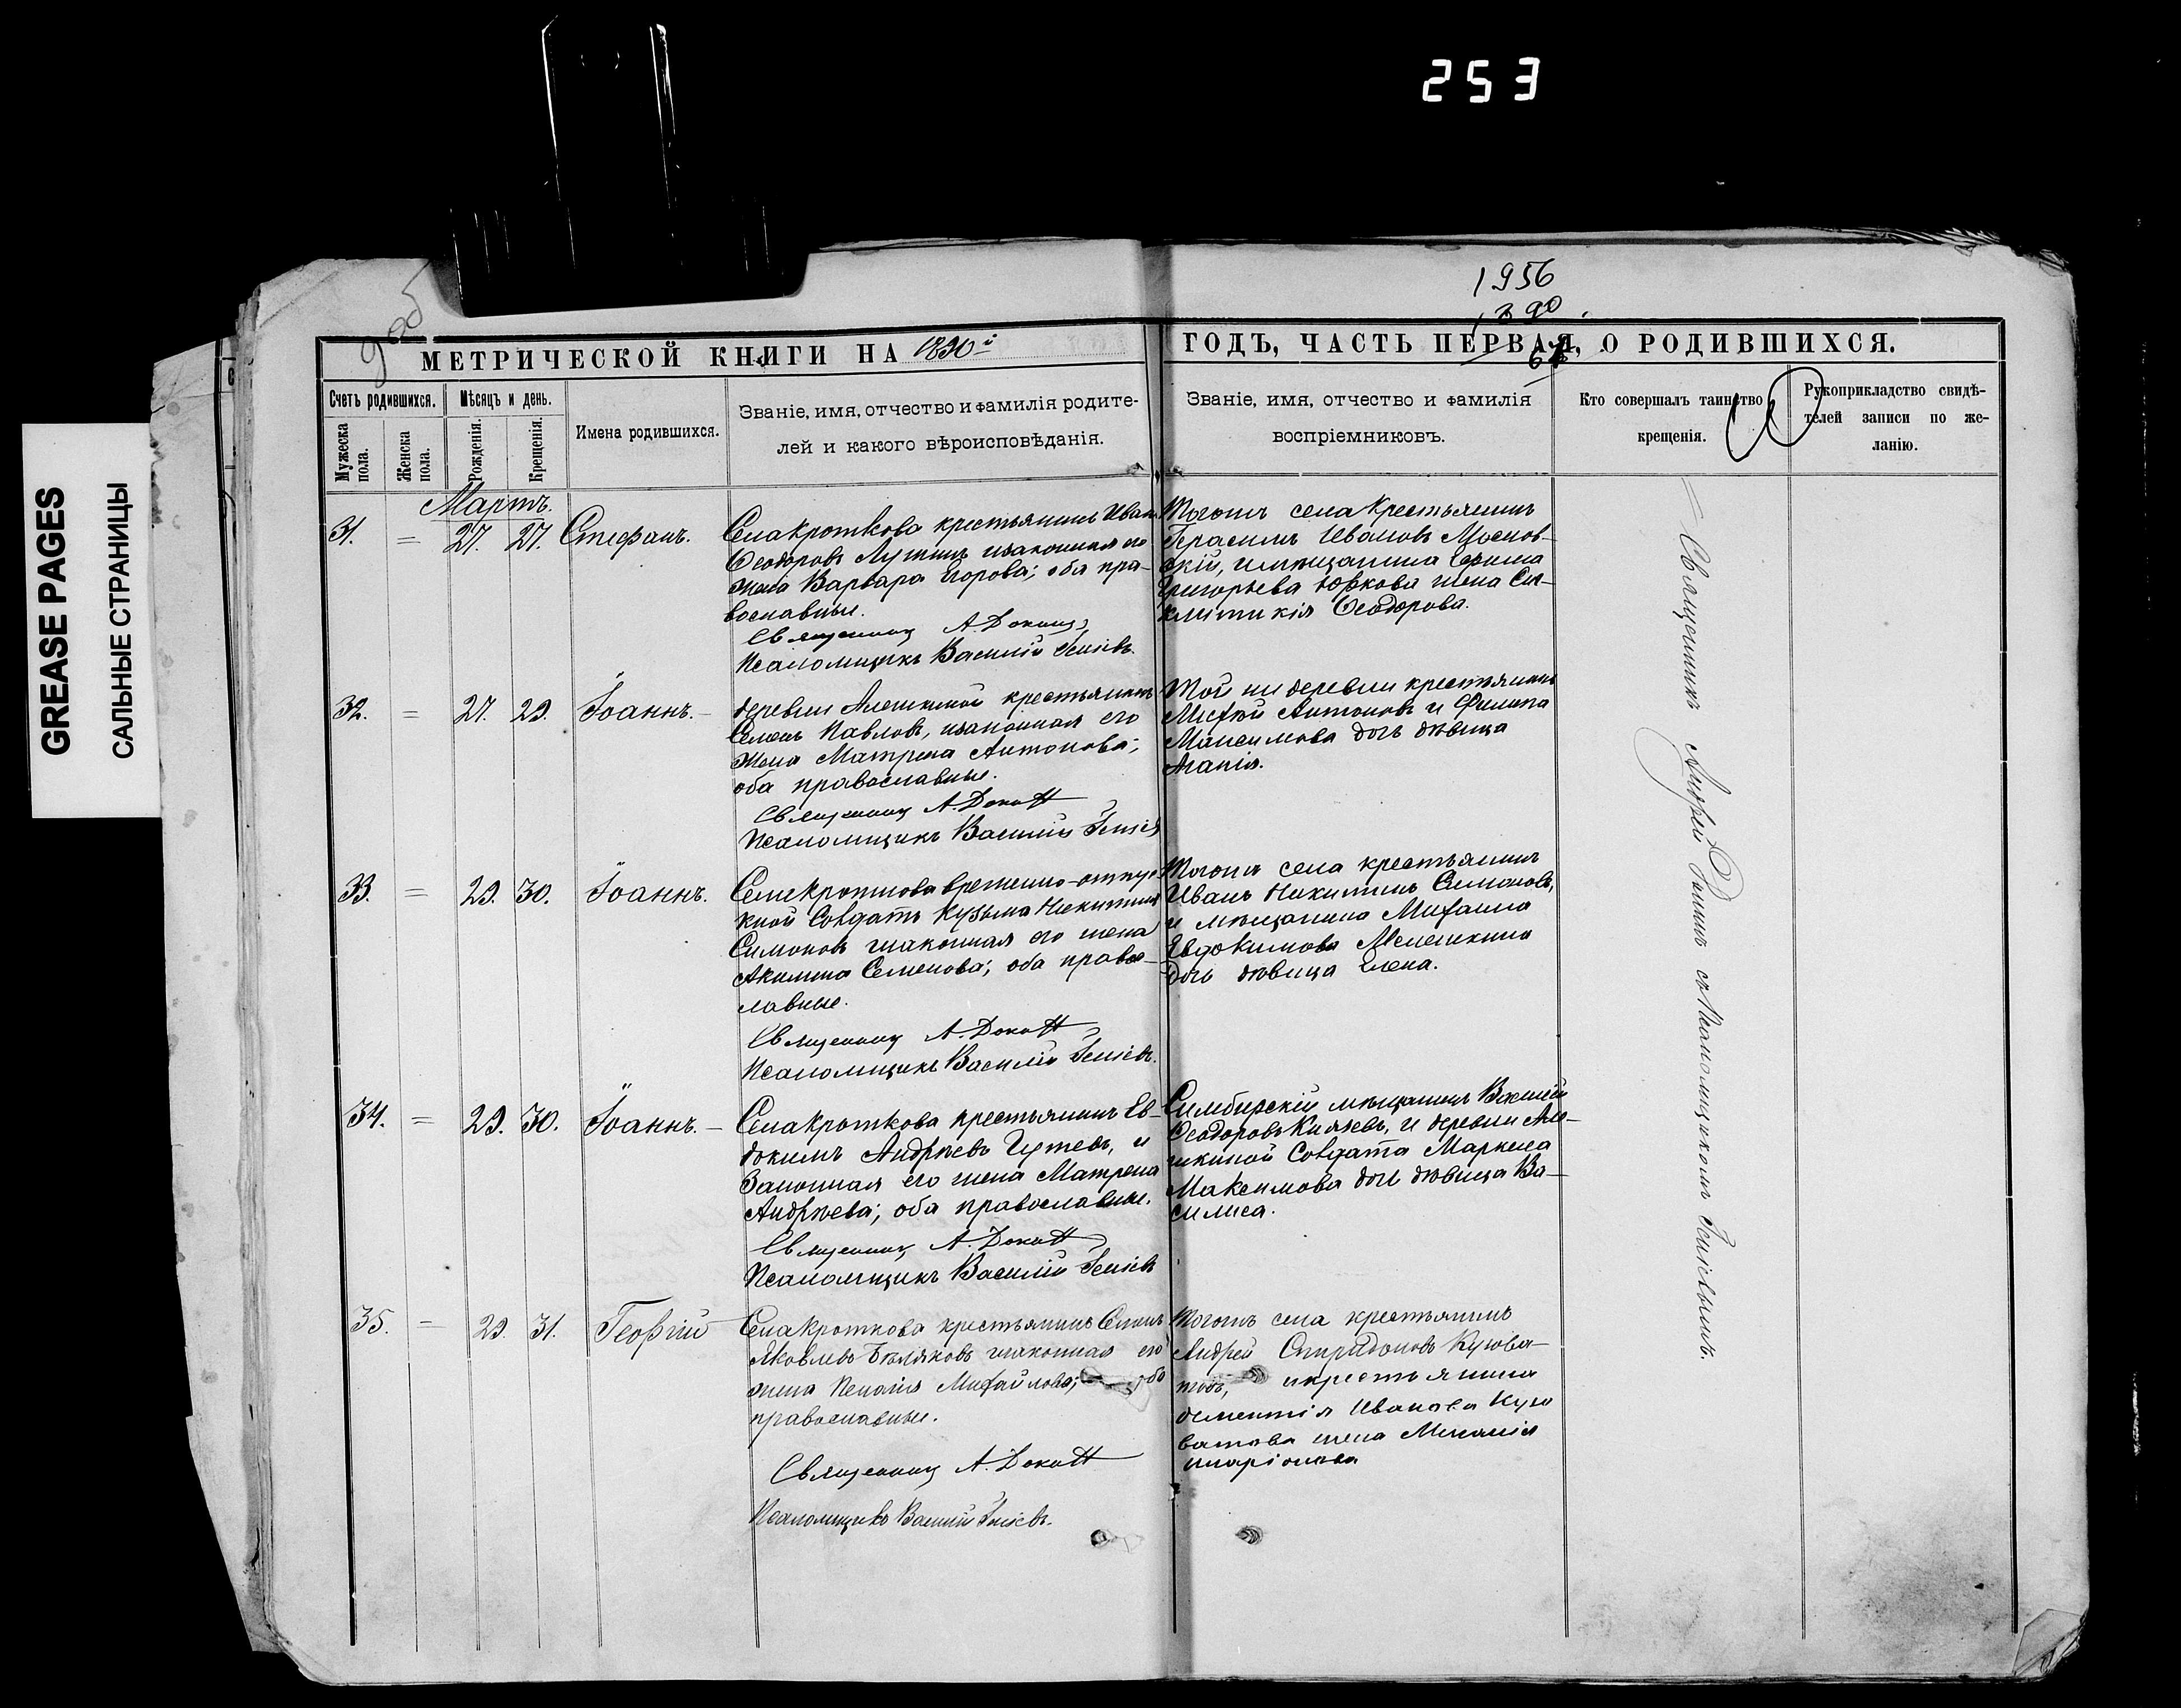 253
GREASE PAGES
САЛЬНЫЕ СТРАНИЦЫ
1956
1890
МЕТРИЧЕСКОЙ КНИГИ НА 1890й
ГОДЪ, ЧАСТЬ ПЕРВАЯ, О РОДИВШИХСЯ.
Счетъ родившихся.
Мужеска пола.
Женска пола.
Мѣсяцъ и день.
Рожденія.
Крещенія.
Имена родившихся.
Званіе, имя, отчество и фамилія родите-
лей и какого вѣроисповѣданія.
Званіе, имя, отчество и фамилія
воспріемниковъ.
Кто совершалъ таинство
крещенія.
Рукоприкладство свидѣ-
телей записи по же-
ланію.
Мартъ.
31. = 27. 27. Стефанъ.
Села Кроткова крестьянинъ Иванъ
Ѳеодоровъ и законная его
жена Варвара Егорова; оба пра-
вославные.
Священникъ А.
Псаломщикъ Василій
Тогожъ села крестьянинъ
Герасимъ Ивановъ Москов-
скій, и мѣщанина
Григорьева Юркова жена Син-
клитикія Ѳеодорова.
32. = 27. 29. Іоаннъ.
деревни Алешкиной крестьянинъ
Семенъ Павловъ, и законная его
жена Матрена Антонова;
оба православные.
Священникъ А.
Псаломщикъ Василій
Той же деревни крестьянинъ
Антоновъ и Филипа
Максимова дочь дѣвица
Агапія.
33. = 29. 30. Іоаннъ.
Села Кроткова временно-отпус-
кной Солдатъ Кузьма Никитинъ
Симоновъ и законная его жена
Акилина Семенова; оба правос-
лавные.
Священникъ А.
Псаломщикъ Василій
Тогожъ села крестьянинъ
Иванъ Никитинъ Симоновъ,
и мѣщанина Михаила
Евдокимова
дочь дѣвица Елена.
34. = 29. 30. Іоаннъ.
Села Кроткова крестьянинъ Ев-
докимъ Андрѣевъ и
законная его жена Матрена
Андрѣева; оба православные.
Священникъ А.
Псаломщикъ Василій
Симбирскій мѣщанинъ Василій
Ѳеодоровъ Князевъ, и деревни Але-
шкиной Солдата Маркела
Максимова дочь дѣвица Ва-
силиса.
35. = 29. 31. Георгій
Села Кроткова крестьянинъ Семенъ
Яковлевъ Бѣляковъ и законная его
жена Пелагія Михайлова; оба
православные.
Священникъ А.
Псаломщикъ Василій
Тогожъ села крестьянинъ
Андрей Спиридоновъ Кузова-
товъ, и крестьянина
Дементія Иванова Кузо
ватова жена Меланія
Иларіонова
Священникъ Андрей съ Псаломщикомъ